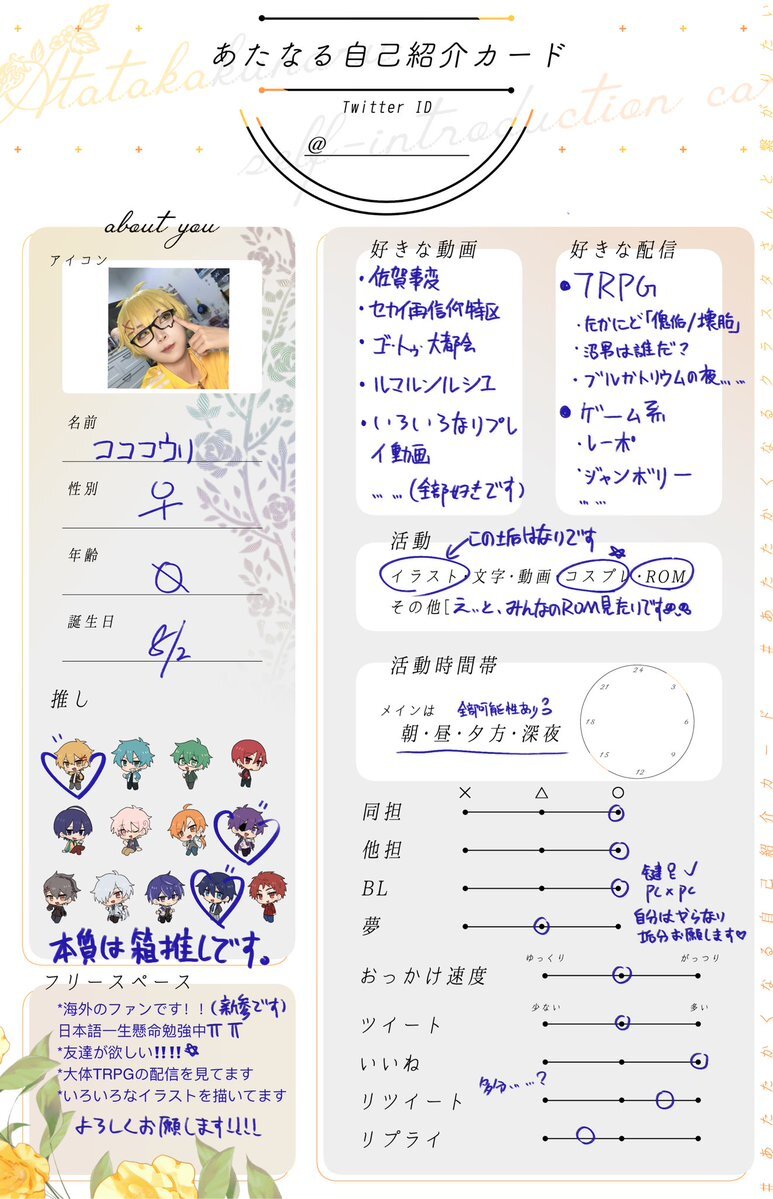 Atatakakunaru
self-introduction ca
あたなる自己紹介カード
Twitter ID
@
about you
アイコン
名前
コココウリ
性別
♀
年齢
誕生日
8/2
推し
本質は箱推しです。
フリースペース
*海外のファンです！！(新参です)
日本語一生懸命勉強中TT TT
*友達が欲しい!!!!
*大体TRPGの配信を見てます
*いろいろなイラストを描いてます
よろしくお願します!!!!
好きな動画
・佐賀事変
・セカイ再信仰特区
・ゴ・トゥ・大都会
・ルマルンルシエ
・いろいろなリプレ
イ動画
... ...(全部好きです)
好きな配信
●TRPG
・たかにど「傀逅/壊胎」
・沼男は誰だ？
・ブルガトリウムの夜... ...
●ゲーム系
・レーポ
・ジャンボリー
... ...
活動
この垢はなりです
イラスト・文字・動画・コスプレ・ROM
その他[えぃと、みんなのROM見たりです
活動時間帯
メインは 全部可能性あり
朝・昼・夕方・深夜
24
21 3
18 6
15 9
12
× △ ○
同担
他担
BL
鍵垢✓
PC×PC
夢
自分はやらない
垢分お願します♡
ゆっくり がっつり
おっかけ速度
少ない 多い
ツイート
いいね
多分... ...?
リツイート
リプライ
#あたたかくなる自己紹介カード #あたたかくなるクラスタさんと繋がりたい